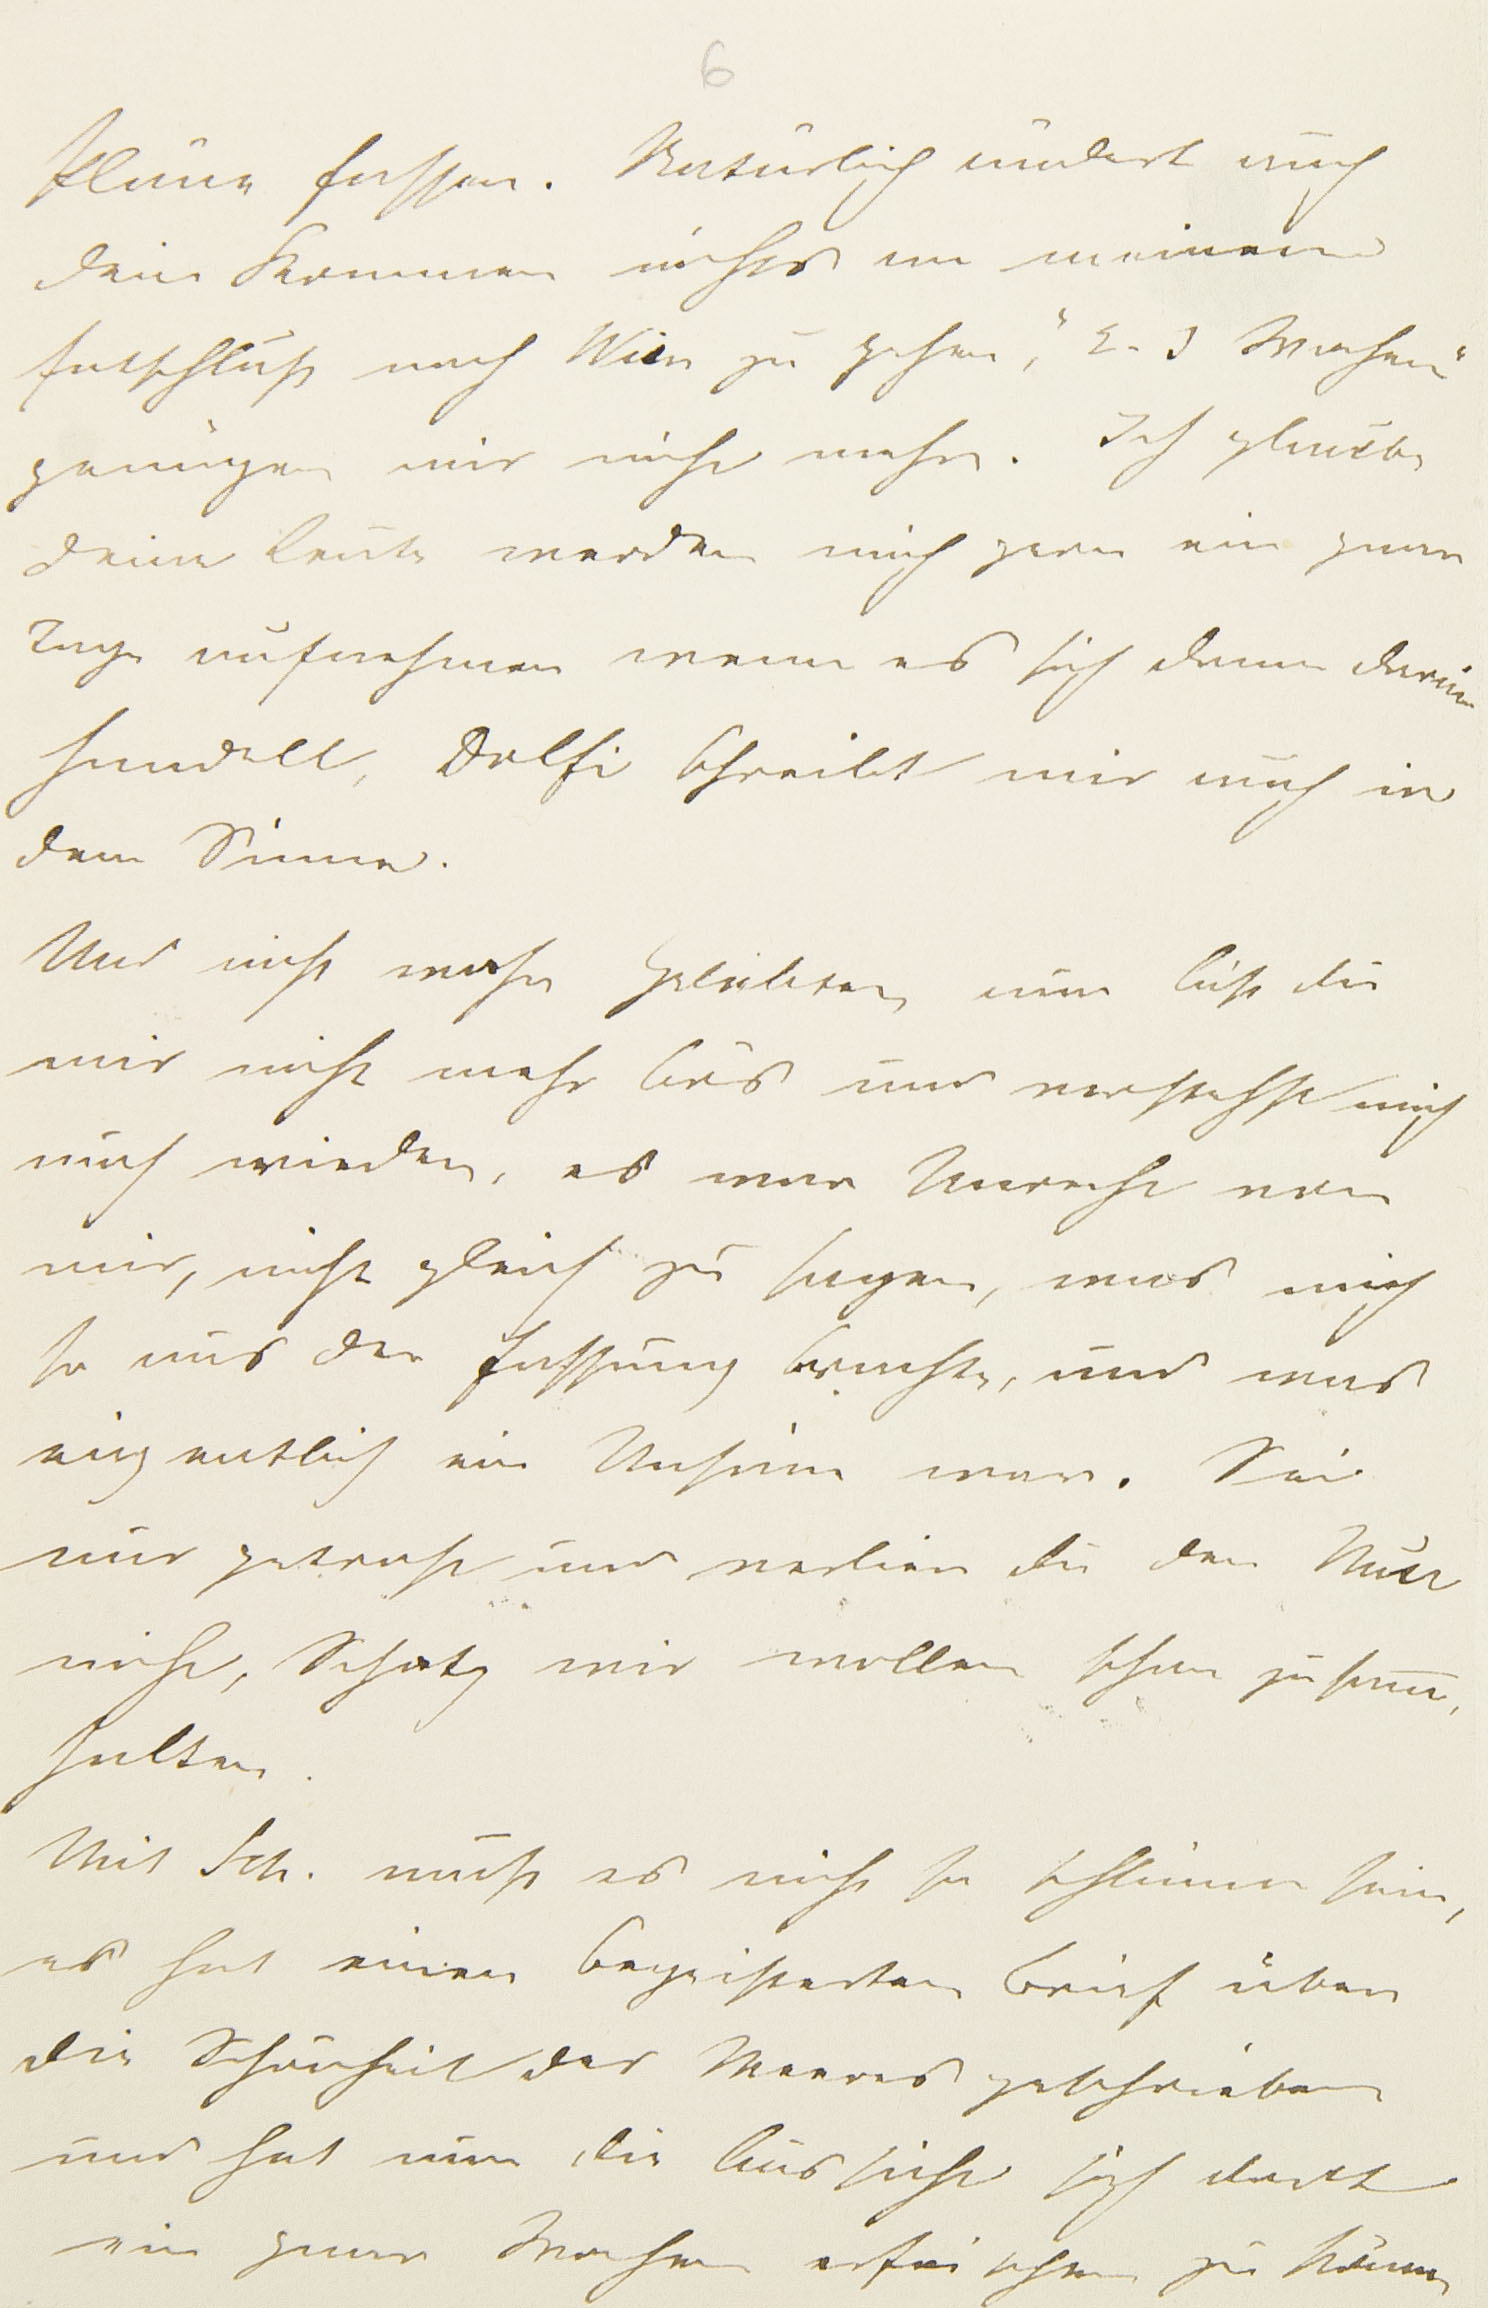 6
Pläne fassen. Natürlich ändert auch
dein Kommen nichts an meinem
Entschluß nach Wien zu gehen, "2-3 Wochen"
genügen mir nicht mehr. Ich glaube
deine Leute werden mich gern ein paar
Tage aufnehmen wenn es sich dann darum
handelt, Dolfi schreibt mir auch in
dem Sinne.
Und nicht wahr Geliebter, nun bist du
mir nicht mehr bös und verstehst mich
auch wieder, es war Unrecht von
mir, nicht gleich zu sagen, was mich
so aus der Fassung brachte, und was
eigentlich ein Unsinn war. Sei
nur getrost und verlier du den Mut
nicht, Schatz wir wollen schon zusam̅en,
halten.
Mit Sch. muß es nicht so schlimm sein,
es hat einen begeisterten Brief über
die Schönheit des Meeres geschrieben
und hat nun die Aussicht sich dort
ein paar Wochen erfrischen zu können